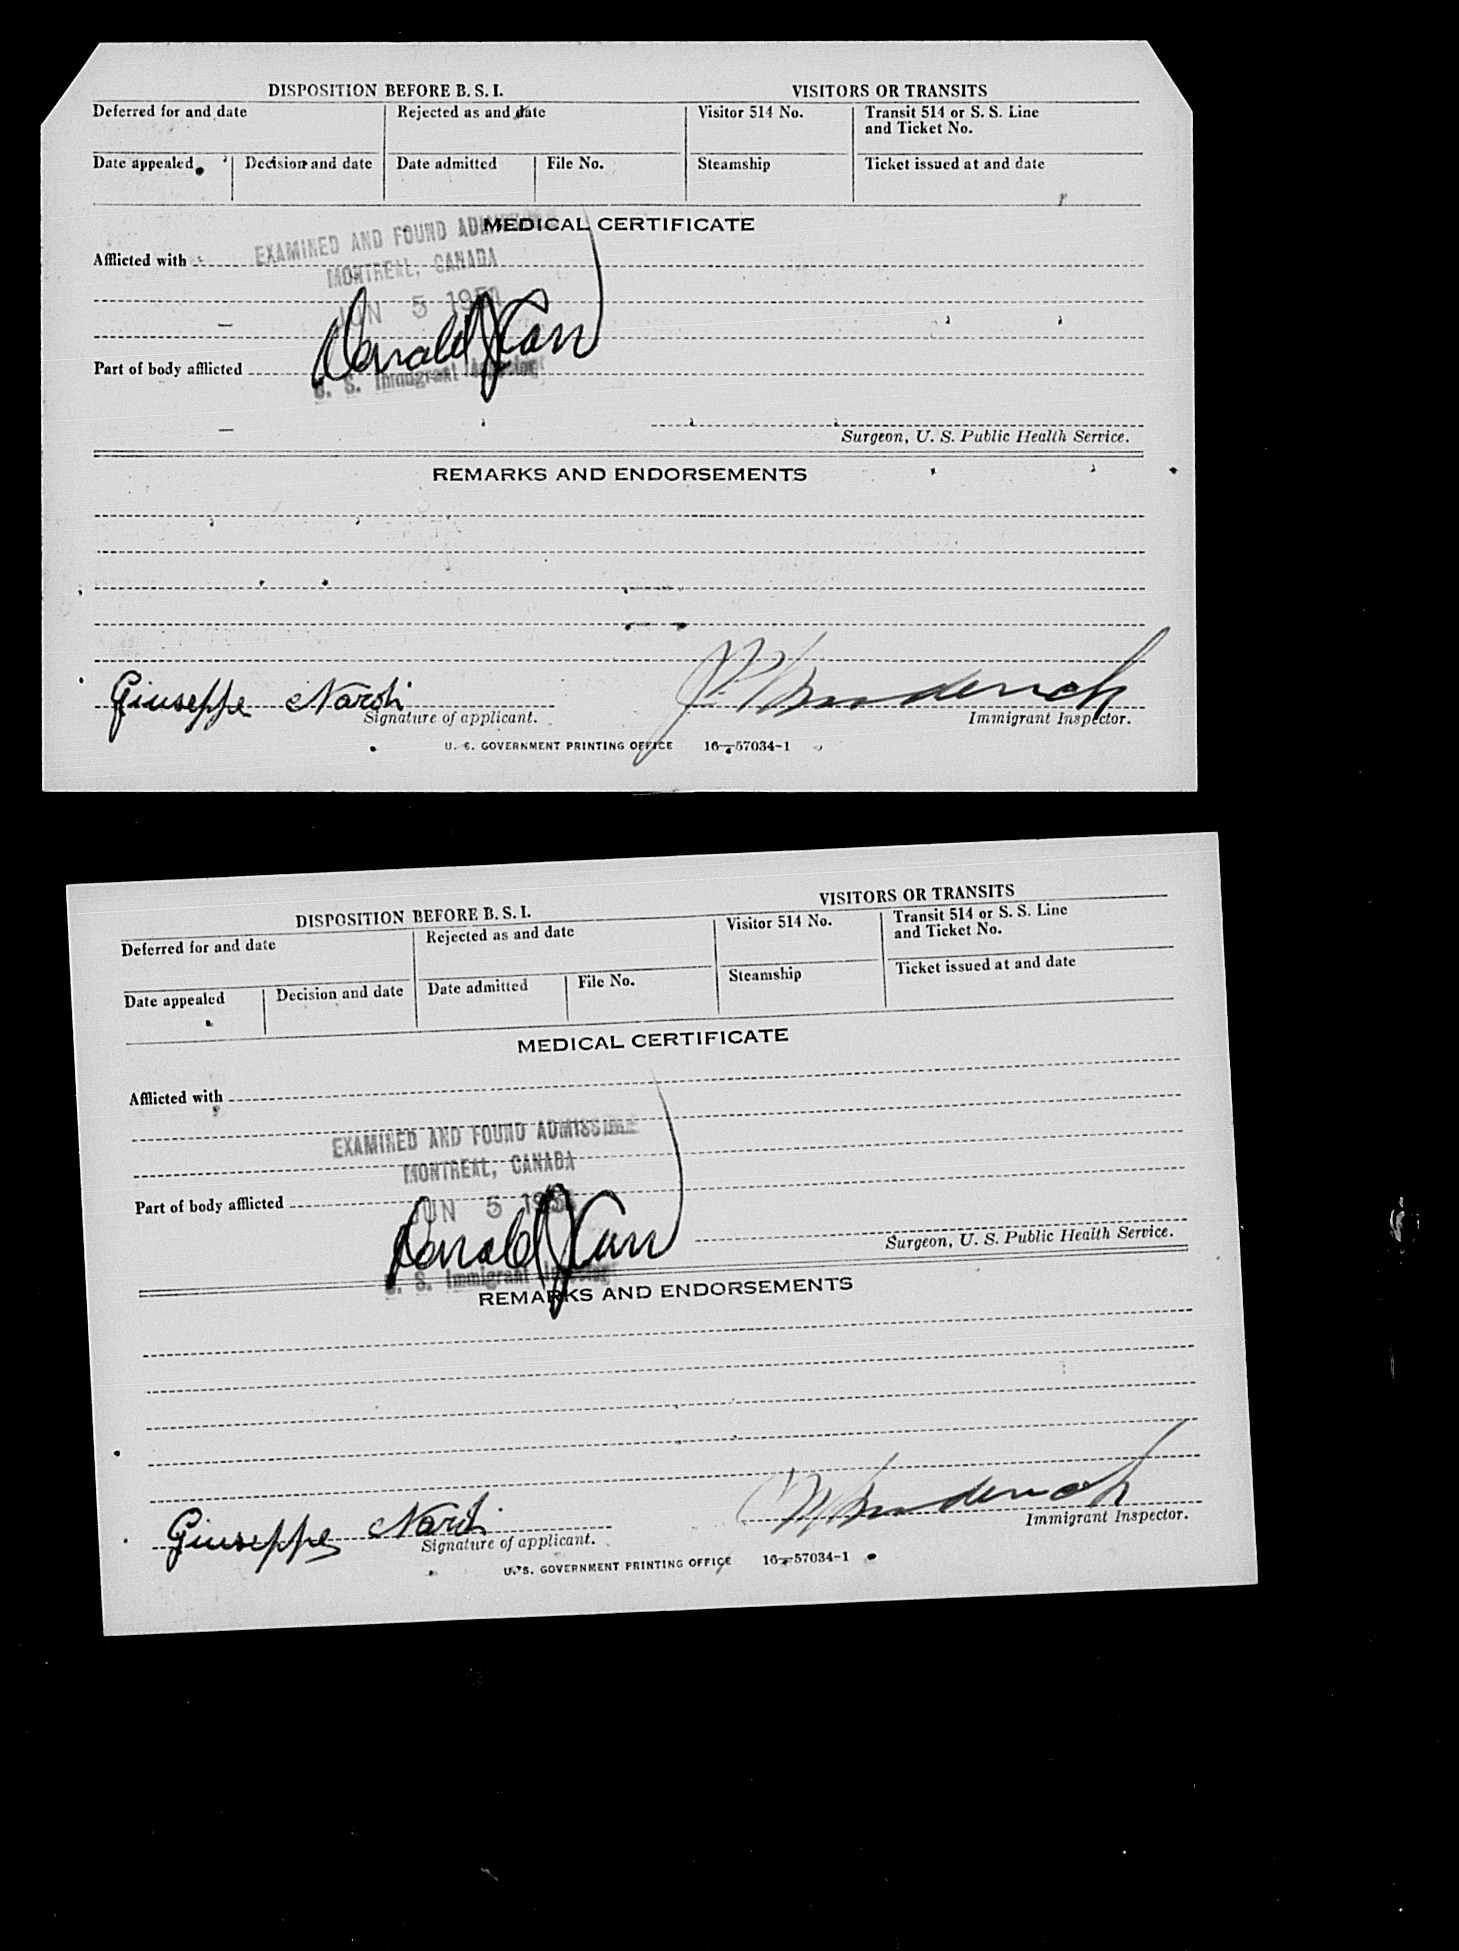 DISPOSITION BEFORE B. S. I. VISITORS OR TRANSITS
Deferred for and date Rejected as and date Visitor 514 No. Transit 514 or S. S. Line
and Ticket No.
Date appealed Decision and date Date admitted File No. Steamship Ticket issued at and date
MEDICAL CERTIFICATE
EXAMINED AND FOUND
Afflicted with
MONTREAL, CANADA
JUN 5
Donald J Carr
Part of body afflicted
U. S. Immigrant Inspector
Surgeon, U. S. Public Health Service.
REMARKS AND ENDORSEMENTS
Giuseppe Nardi
Signature of applicant. Immigrant Inspector.
U. S. GOVERNMENT PRINTING OFFICE 16—57034-1
VISITORS OR TRANSITS
DISPOSITION BEFORE B. S. I.
Deferred for and date Rejected as and date Visitor 514 No. Transit 514 or S. S. Line
and Ticket No.
Date appealed Decision and date Date admitted File No. Steamship Ticket issued at and date
MEDICAL CERTIFICATE
Afflicted with
EXAMINED AND FOUND ADMISSIBLE
MONTREAL, CANADA
Part of body afflicted
JUN 5
Donald J Carr
Surgeon, U. S. Public Health Service.
U. S. Immigrant Inspector
REMARKS AND ENDORSEMENTS
Giuseppe Nardi
Signature of applicant. Immigrant Inspector.
U. S. GOVERNMENT PRINTING OFFICE 16—57034-1